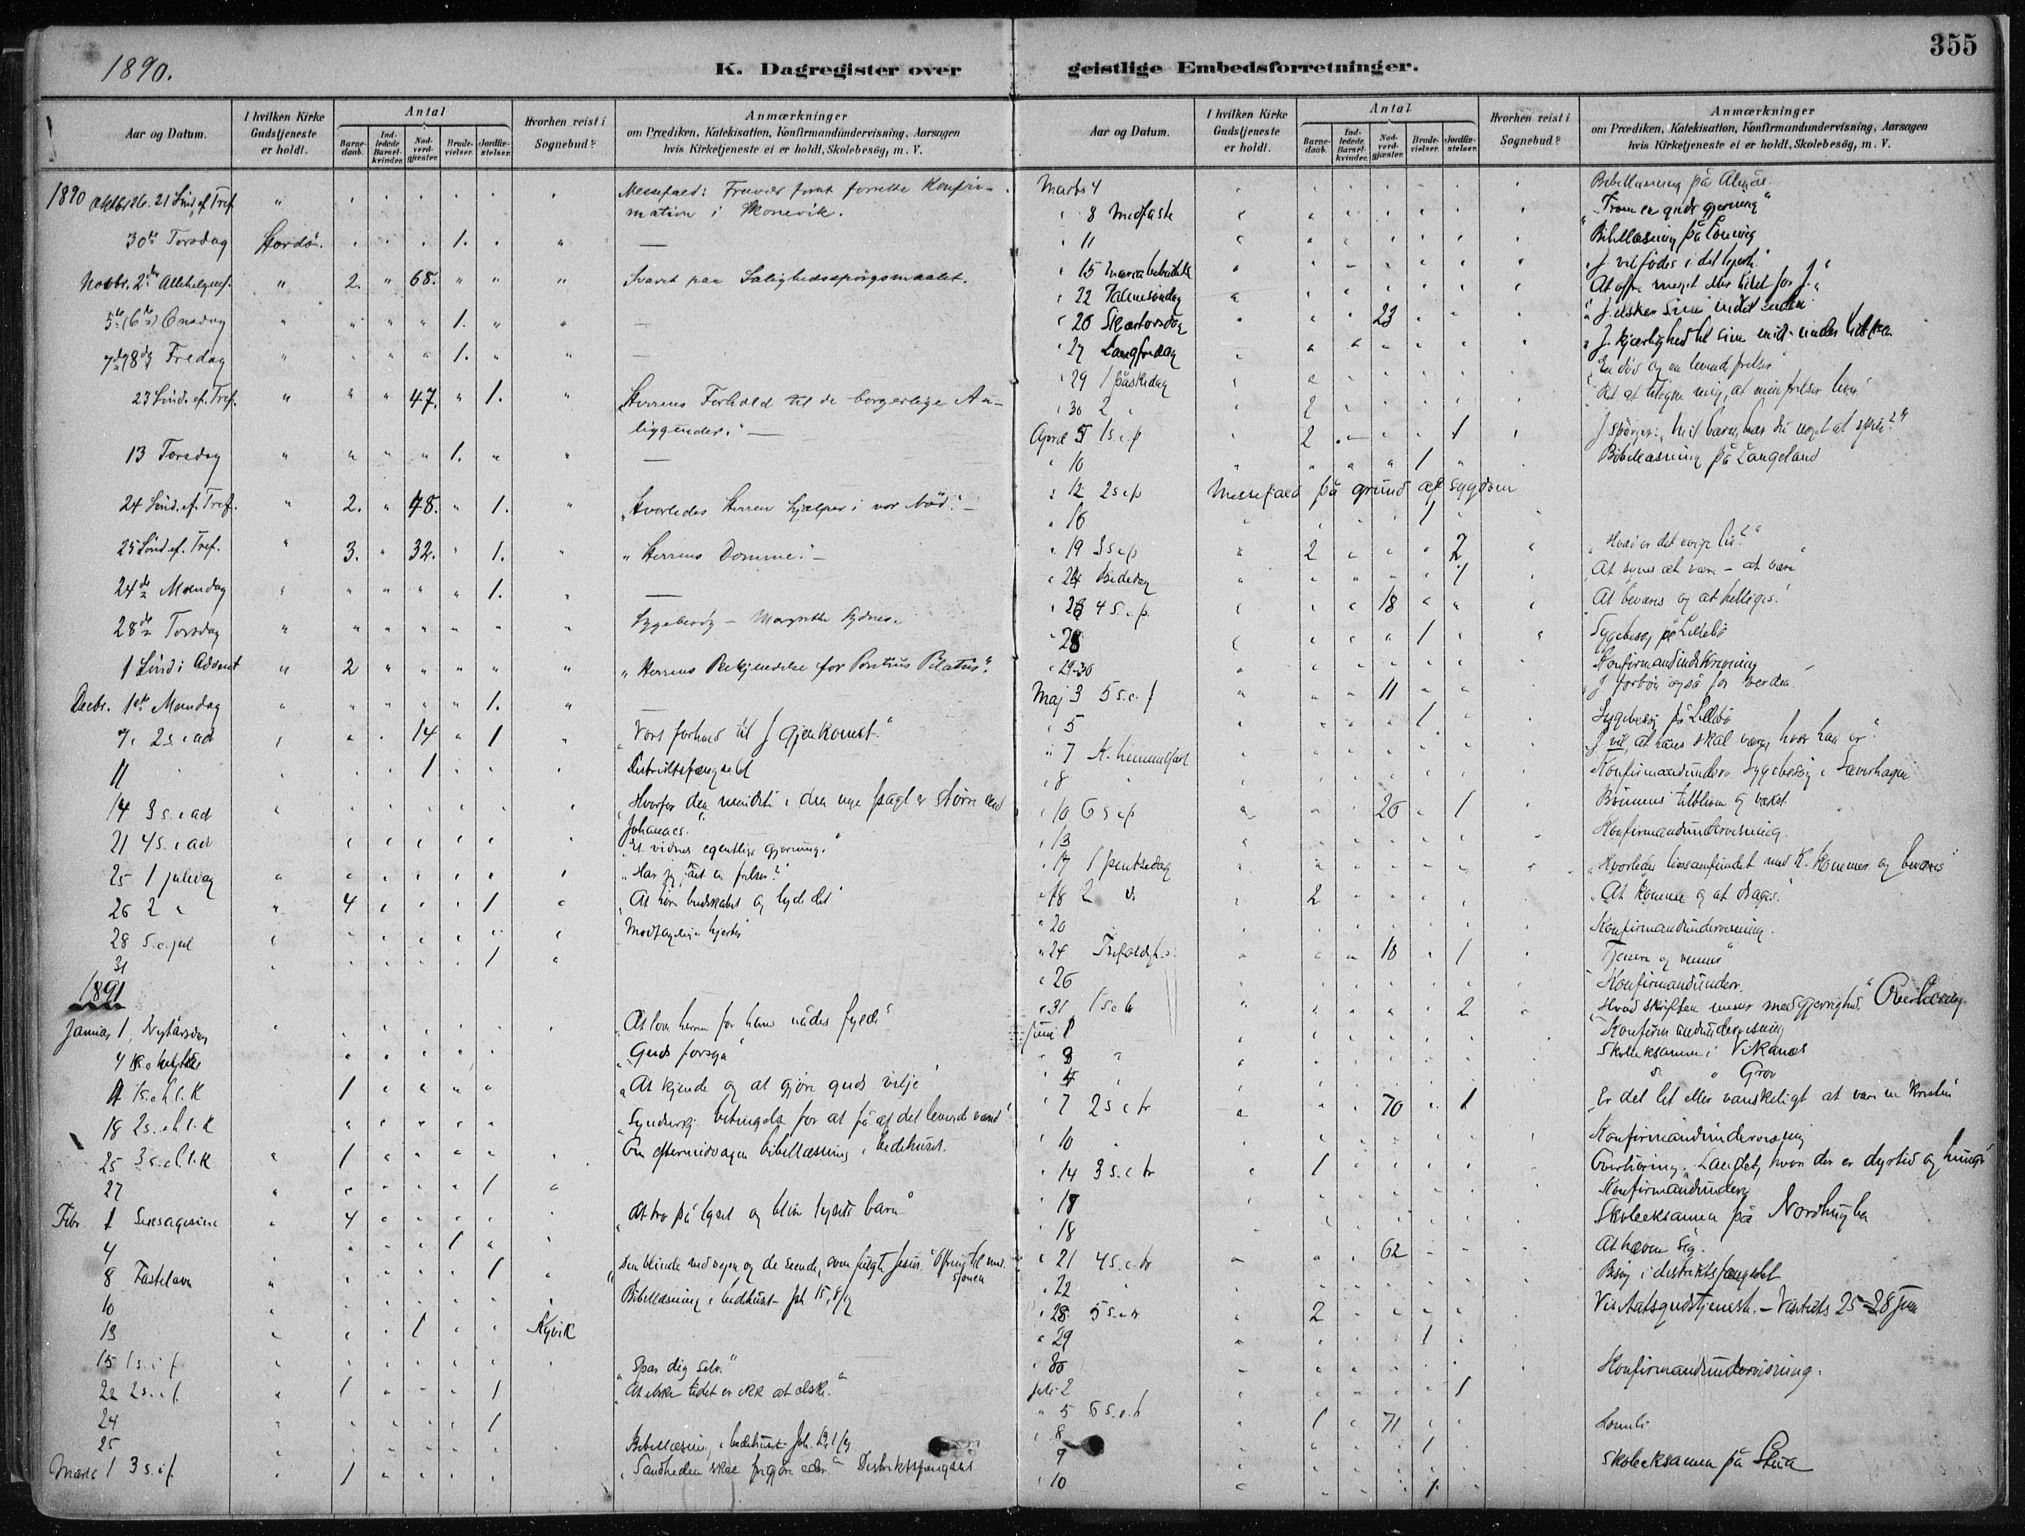 355
1890.
K. Dagregister over geistlige Embedsforretninger.
Aar og Datum.
I hvilken Kirke Gudstjeneste er holdt.
Antal
Barnedaab.
Indledede Barselkvinder.
Nadverdgjæster.
Brudevielser.
Jordfæstelser.
Hvorhen reist i Sognebud?
Anmærkninger
om Prædiken, Katekisation, Konfirmandundervisning, Aarsagen
hvis Kirketjeneste ei er holdt, Skolebesøg, m. V.
1890 Oktbr. 21 Sönd. ef. Tref. Messefald: Fravær for at forrette Konfir-
mation i Skonevik.
30te Torsdag Stordö. 1.
Novbr. 2den Allehelgensf. 2. 68. Svaret paa Salighedsspörgsmaalet.
5te (6te) Onsdag 1.
7de (8de) Fredag 1.
23 Sönd. ef. Tref. 47. 1. Herrens Forhold til de borgerlige An-
liggender."
13 Torsdag 1.
24 Sönd. ef. Tref. 2. 48. 1. "Hvorledes Herren hjælper i vor Nöd."
25 Sönd ef. Tref. 3. 32. 1. "Herrens Domme."
24de Mandag 1.
28de Torsdag Sygebesög - Margrethe
1 Sönd i Advent 2 "Herrens Bekjendelse for Pontius Pilatus".
Decbr. 1ste Mandag 1.
7. 2 s. i ad 14 1 Vort forhold til J gjenkomst."
11 1 Distriktsfængslet
14 3 s. i ad Hvorfor den mindste i den nye pagt er större end
Johannes."
21 4 s. i ad Et vidnes egentlige gjerning."
25 1 juledag "Har jeg fået en frelser?"
26 2 " 4 1 "At höre budskabet og lyde det"
28 s. e. jul Modtagelige hjerter
31 1
1891
Januar 1, Nytårsdag "At love herren for hans nådes fylde"
4 s. e. nytår "Guds forsyn"
11 1 s. e. h. t. K 1 "At kjende og at gjöre guds vilje"
18 2 s. e. h. t. K betingelse for at få af det levende vand"
25 3 s. e. h. t. K 1 Om eftermiddagen bibellæsning i bedehuset.
27 1
Febr. 1 Sexagesima 4 "At tro på lyset og blive lysets barn"
4 1
8 Fastelavn 1 Den blinde ved vejen og de seende, som fulgt Jesus." Ofring til mis-
sionen
10 Bibellæsning i bedehuset Joh 15,
13 1 Kyvik
15 1 s. i f. "Spar dig selv."
22 2 s. i f. 1 1 "At elske tidet er ikke at elske."
24 1
25 Bibellæsning i bedehuset Joh.
Marts 1 3 s. i f. 1 "Sandheden skal frigjöre eder." Distriktsfængslet
Marts 4 Bibellæsning på
8 Midfaste "Troen er guds gjerning"
11 Bibellæsning på
15 Maria budskab J. vil födes i det hjerte"
22 Palmesöndag At ofre meget eller lidet for J."
26 Skærtorsdag 23 J. elsker sine indtil enden
27 Langfredag J. kjærlighed til sine midt under lidelsen
29 1 påskedag En död og en levende frelser"
30 2 " 2 Ret at tilegne mig, at min frelser lever
April 5 1 s. e. p 2 1 J. spörger: "Mit barn, har du noget at spise?"
10 1 Bibellæsning på Langeland
12 2 s e p Messefald på grund af sygdom
16 1
19 3 s e p 2 2 "Hvad er det evige liv?"
24 Bededag 1 "At synes at være - at være"
26 4 s. e. p. 18 At bevares og at helliges."
28 1 Sygebesög på Lillebö
29-30 Konfirmandindskrivning
Maj 3 5 s. e. p 11 J. forbön også for verden
5 1 Sygebesög på Lillebö
7 K. himmelfart J vil, at hans skal være, hvor han er."
8 Konfirmandunderv. Sygebesög i Sæverhagen
10 6 s e p 26 1 Bönnens tilbliven og vækst.
13 Konfirmandundervisning.
17 1 pintsedag "Hvorledes livssamfundet med K. kommer og bevares"
18 2 d. 2 "At komme og at drages.
20 Konfirmandundervisning.
24 Trefoldigh. s. 10 1 Tjenere og venner"
26 Konfirmandunderv.
31 1 s. e. tr 2 "Hvad skriften mener med gjerrighed." Overhöring.
Juni 1 Konfirmandundervisning
3 " Skoleeksamen i Vikanes
4 " d. " Grov
7 2 s. e. tr 70 1 Er det let eller vanskeligt at være en kristen
10 Konfirmandundervisning
14 3 s. e. tr 1 Overhöring. "Landet, hvor der er dyrtid og hunger"
17 Konfirmandunderv.
18 Skoleeksamen på Nordhuglen
21 4 s. e. tr 62 At hæven sig.
22 Besög i distriktsfængslet
28 5 s. e. tr 2 Visitatsgudstjeneste. - Visitats 25-28 Juni
29 1
30 Konfirmandundervisning.
Juli 2 1
5 6 s. e. tr 1 71
8 1
9 Skoleeksamen på
10 1.